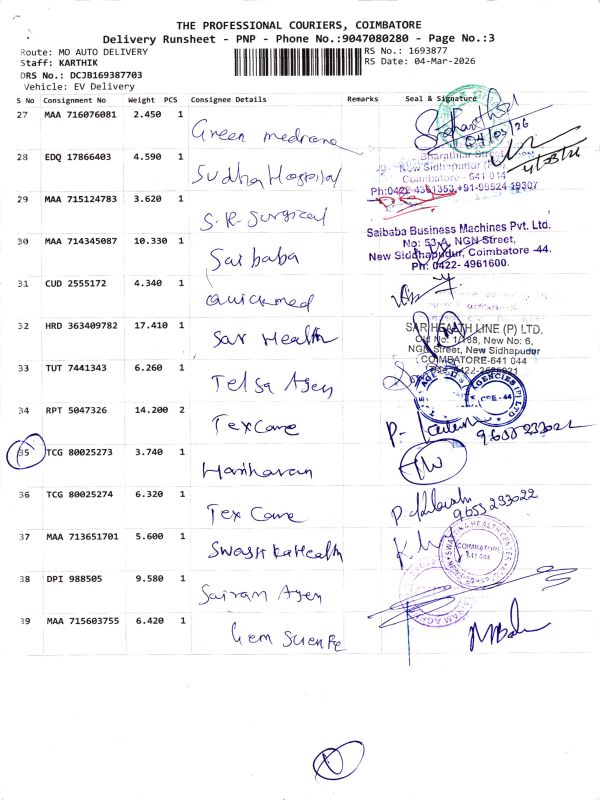 THE PROFESSIONAL COURIERS, COIMBATORE
Delivery Runsheet - PNP - Phone No.:9047080280 - Page No.:3
Route: MO AUTO DELIVERY
RS No.: 1693877
Staff: KARTHIK
RS Date: 04-Mar-2026
DRS No.: DCJB169387703
Vehicle: EV Delivery
S No Consignment No Weight PCS Consignee Details Remarks Seal & Signature
27 MAA 716076081 2.450 1
Green
04/03/26
28 EDQ 17866403 4.590 1
Sudha Hospital
4/03/26
Coimbatore - 641 014
Ph:0422-4351353,+91-99524 19307
29 MAA 715124783 3.620 1
S.R. Surgical
30 MAA 714345087 10.330 1
Sai baba
Saibaba Business Machines Pvt. Ltd.
No: 53-A, NGN Street,
New Siddhapudur, Coimbatore -44.
Ph: 0422- 4961600.
31 CUD 2555172 4.340 1
Quickmed
32 HRD 363409782 17.410 1
Sar Health
SAR HEALTH LINE (P) LTD.
Old No: 1/188, New No: 6,
NGN Street, New Sidhapudur
COIMBATORE-641 044
33 TUT 7441343 6.260 1
Telsa Agen
AGENCIES (P) LTD
CBE - 44
34 RPT 5047326 14.200 2
Tex Care
35 TCG 80025273 3.740 1
Hariharan
36 TCG 80025274 6.320 1
Tex Care
9655 233022
37 MAA 713651701 5.600 1
Swastika Health
COIMBATORE
641 044
38 DPI 988505 9.580 1
Sairam Agen
39 MAA 715603755 6.420 1
Gem
1